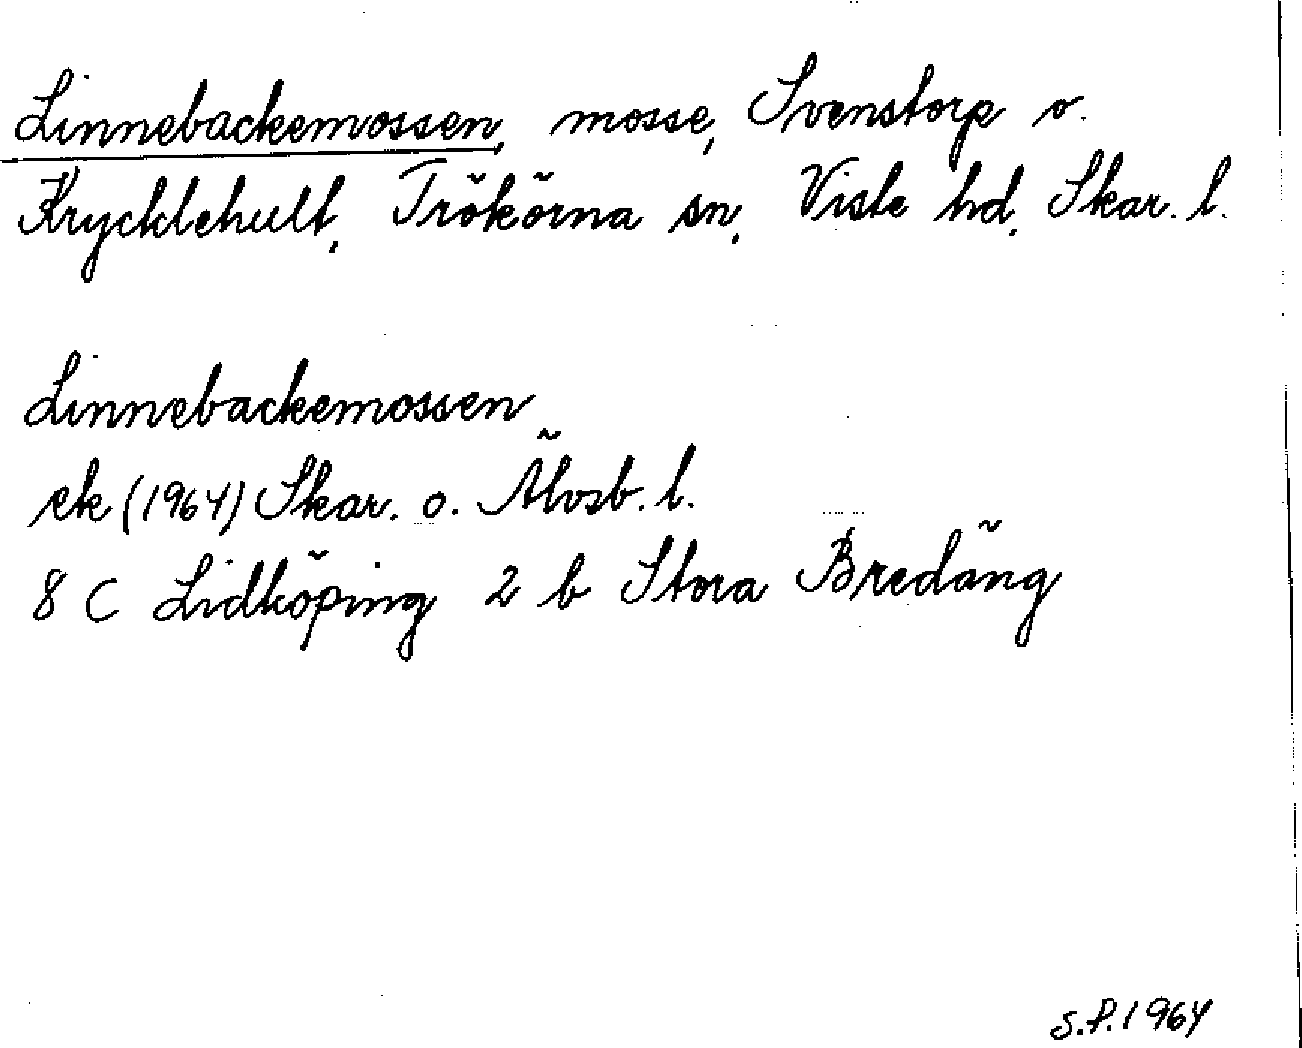 Linnebackemossen, mosse, Svenstorp o.
Krycklehult, Trökörna sn, Viste hd, Skar. l.
Linnebackemossen
ek (1964) Skar. o. Älvsb. l.
8 C Lidköping 2 b Stora Bredäng
S.P. 1964